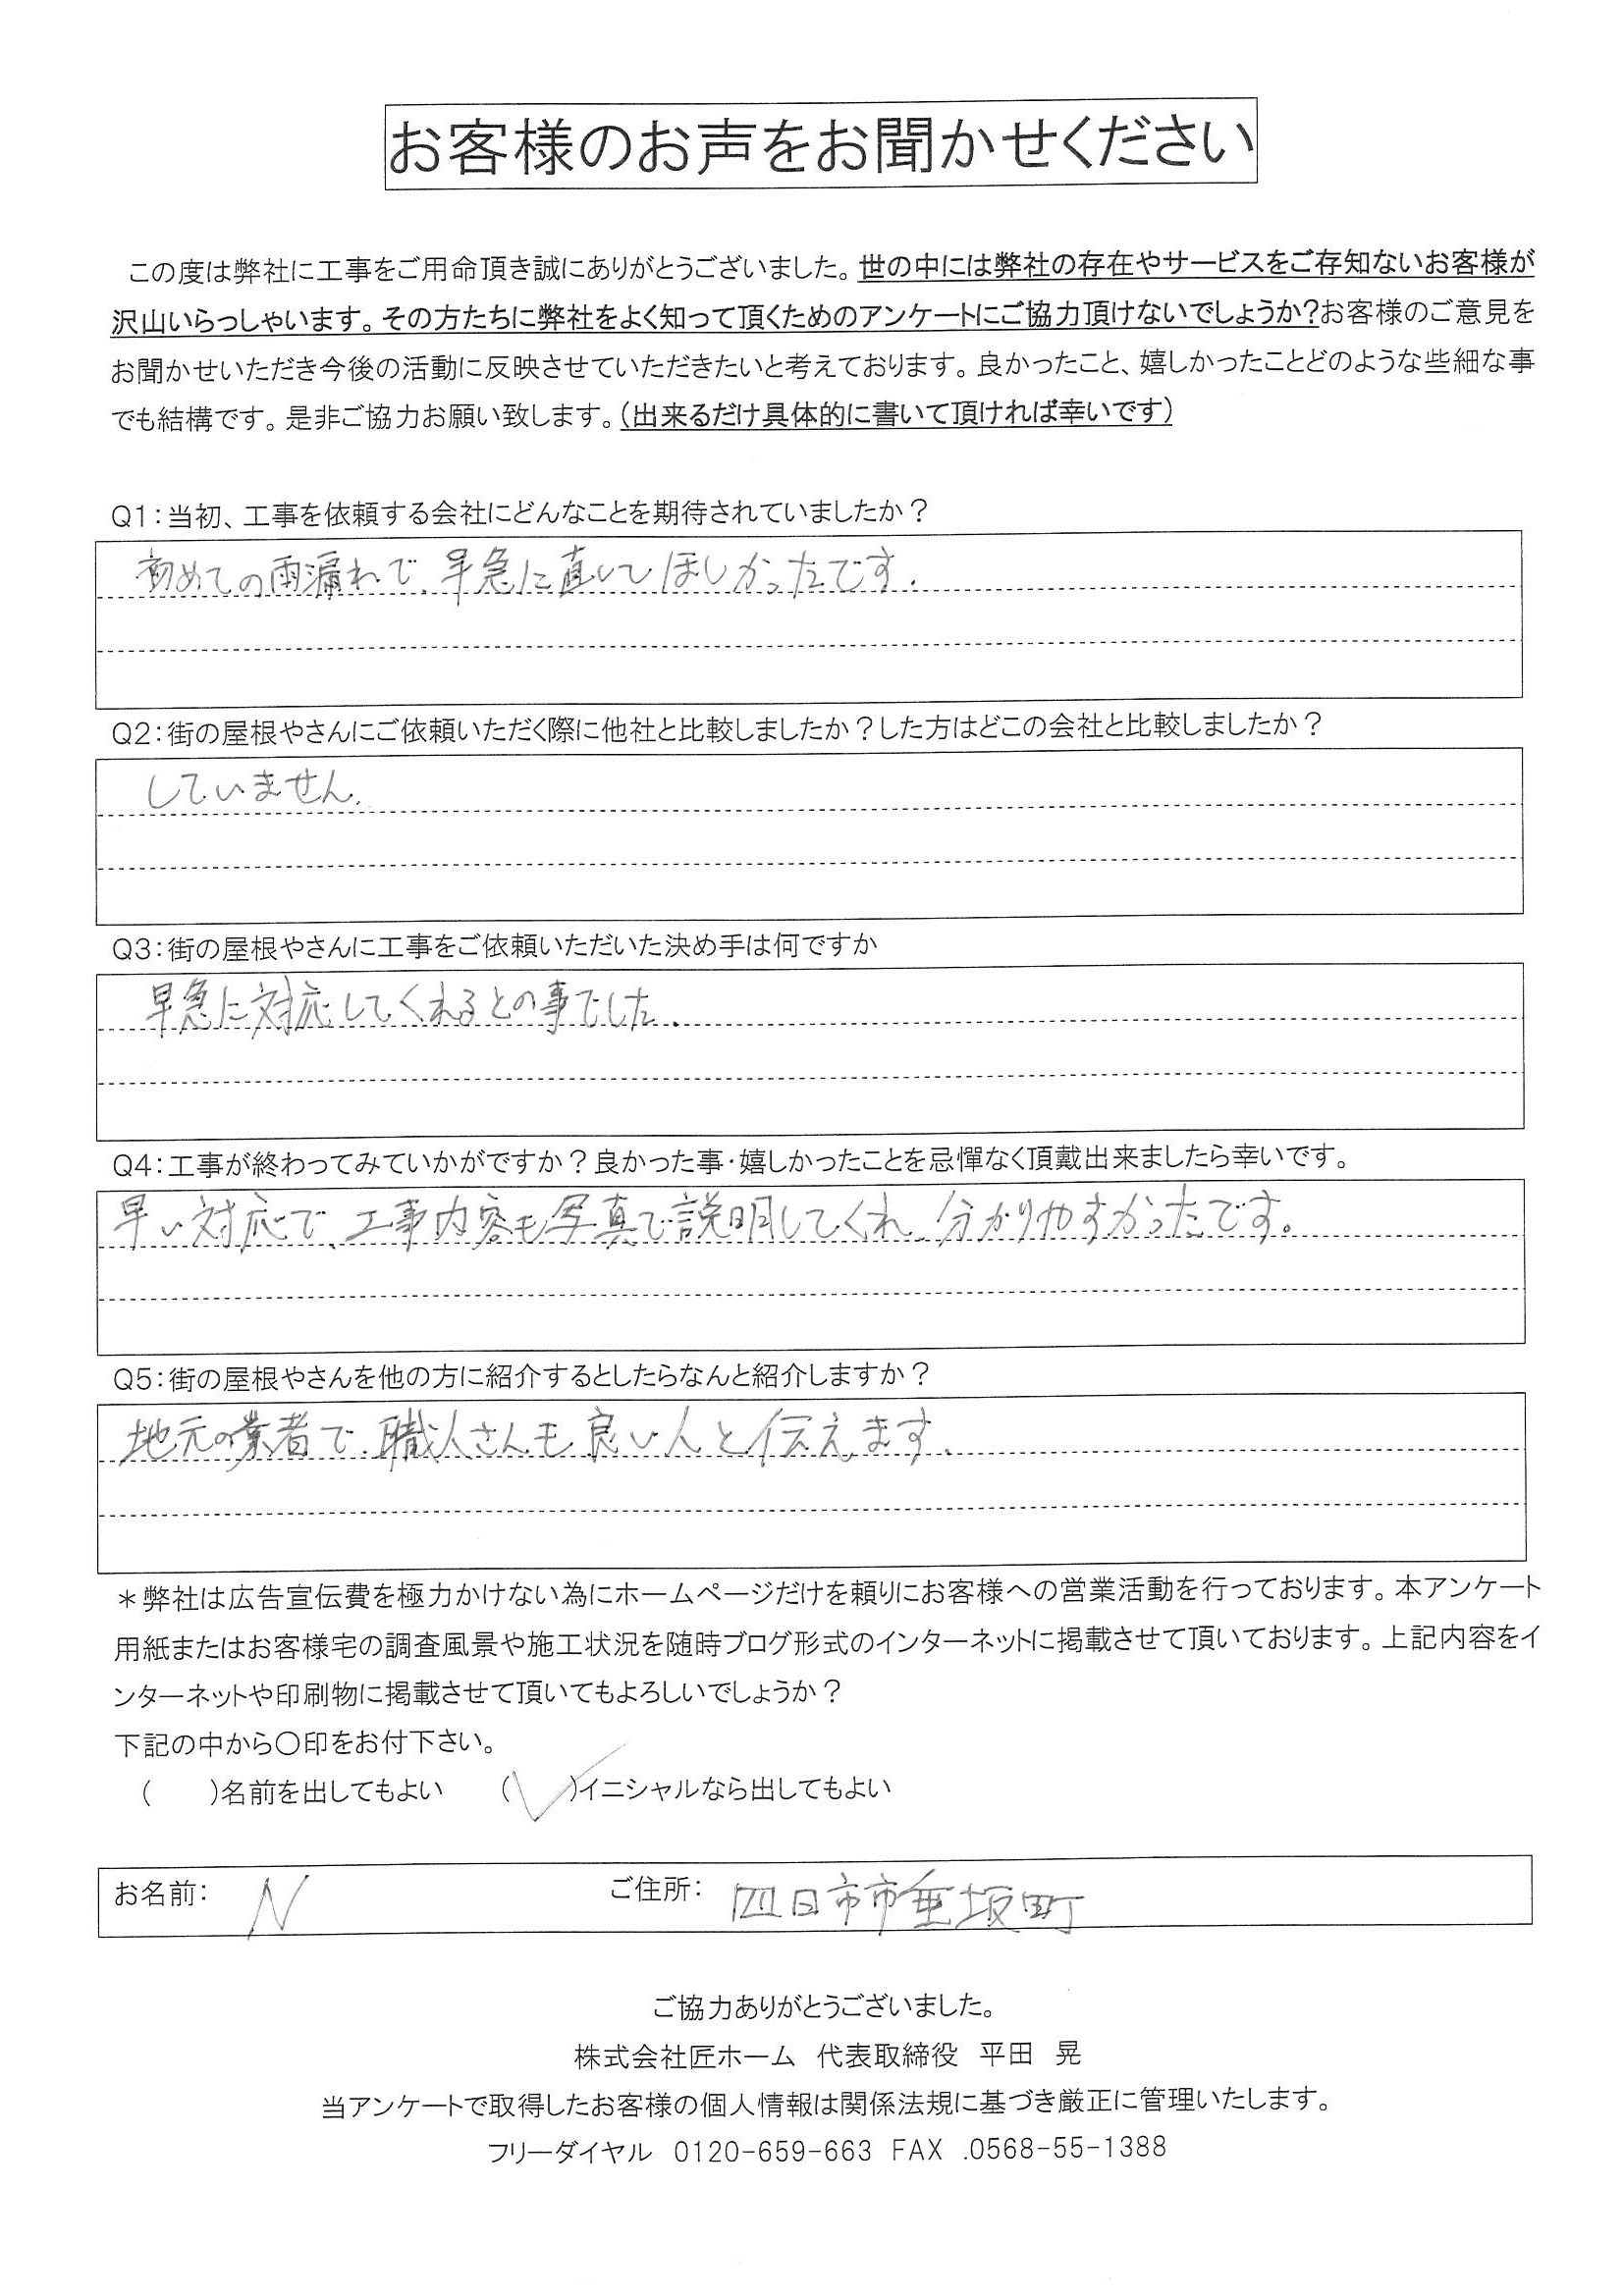 お客様のお声をお聞かせください
この度は弊社に工事をご用命頂き誠にありがとうございました。世の中には弊社の存在やサービスをご存知ないお客様が
沢山いらっしゃいます。その方たちに弊社をよく知って頂くためのアンケートにご協力頂けないでしょうか?お客様のご意見を
お聞かせいただき今後の活動に反映させていただきたいと考えております。良かったこと、嬉しかったことどのような些細な事
でも結構です。是非ご協力お願い致します。(出来るだけ具体的に書いて頂ければ幸いです)
Q1:当初、工事を依頼する会社にどんなことを期待されていましたか?
初めての雨漏れで、早急に直してほしかったです.
Q2:街の屋根やさんにご依頼いただく際に他社と比較しましたか?した方はどこの会社と比較しましたか?
していません.
Q3:街の屋根やさんに工事をご依頼いただいた決め手は何ですか
早急に対応してくれるとの事でした.
Q4:工事が終わってみていかがですか?良かった事・嬉しかったことを忌憚なく頂戴出来ましたら幸いです。
早い対応で、工事内容も写真で説明してくれ、分かりやすかったです。
Q5:街の屋根やさんを他の方に紹介するとしたらなんと紹介しますか?
地元の業者で、職人さんも良い人と伝えます.
*弊社は広告宣伝費を極力かけない為にホームページだけを頼りにお客様への営業活動を行っております。本アンケート
用紙またはお客様宅の調査風景や施工状況を随時ブログ形式のインターネットに掲載させて頂いております。上記内容をイ
ンターネットや印刷物に掲載させて頂いてもよろしいでしょうか?
下記の中から〇印をお付下さい。
( )名前を出してもよい (✓)イニシャルなら出してもよい
お名前: N ご住所: 四日市市垂坂町
ご協力ありがとうございました。
株式会社匠ホーム 代表取締役 平田 晃
当アンケートで取得したお客様の個人情報は関係法規に基づき厳正に管理いたします。
フリーダイヤル 0120-659-663 FAX .0568-55-1388